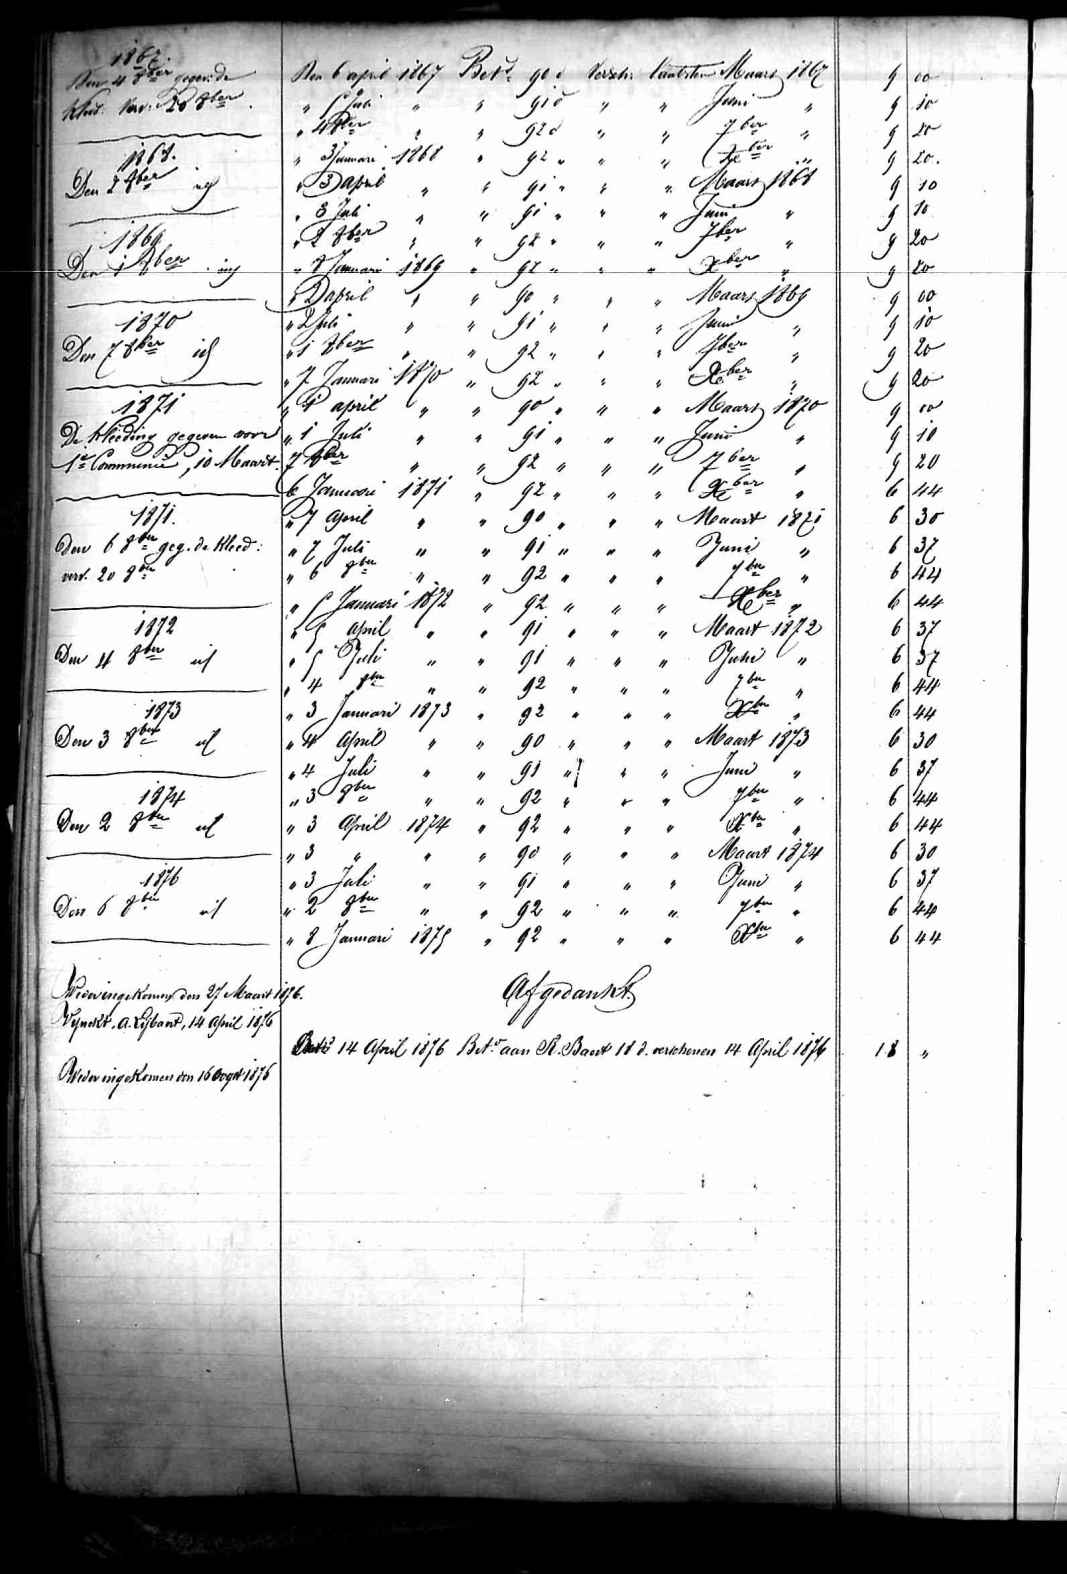 1867.
Den 4 8ber gegev: de
kleed. Verv: 20 8ber.
1868.
Den 2 8ber id
1869
Den 1 8ber id
1870
Den 7 8ber id
1871
De kleeding gegeven voor
1e Communie, 10 Maart.
1871.
Den 6 8ber geg. de kleed:
verv. 20 8ber
1872
Den 4 8ber id
1873
Den 3 8ber id
1874
Den 2 8ber id
1876
Den 6 8ber id
Weder ingekomen den 27 Maart 1876.
14 April 1876
Weder ingekomen den 16 Oogst 1876
Den 6 april 1867 Betd 90 d Versch: laatsten Maart 1867 9 00
" 5 Juli " " 91 d " " Juni " 9 10
" 4 8ber " " 92 d " " 7ber " 9 20
" 3 Januari 1868 " 92 " " " Xber " 9 20.
" 3 april " " 91 " " " Maart 1868 9 10
" 3 Juli " " 91 " " " Juni " 9 10
" 2 8ber " " 92 " " " 7ber " 9 20
" 8 Januari 1869 " 92 " " " Xber " 9 20
" 2 april " " 90 " " " Maart 1869 9 00
" 2 Juli " " 91 " " " Juni " 9 10
" 1 8ber " " 92 " " " 7ber " 9 20
" 7 Januari 1870 " 92 " " " Xber " 9 20
" 1 april " " 90 " " " Maart 1870 9 00
" 1 Juli " " 91 " " " Juni " 9 10
" 7 8ber " " 92 " " " 7ber " 9 20
6 Januari 1871 " 92 " " " Xber " 6 44
" 7 April " " 90 " " " Maart 1871 6 30
" 7 Juli " " 91 " " " Juni " 6 37
" 6 8ber " " 92 " " " 7ber " 6 44
" 5 Januari 1872 " 92 " " " Xber " 6 44
" 5 April " " 91 " " " Maart 1872 6 37
" 5 Juli " " 91 " " " Juni " 6 37
" 4 8ber " " 92 " " " 7ber " 6 44
" 3 Januari 1873 " 92 " " " Xber " 6 44
" 4 April " " 90 " " " Maart 1873 6 30
" 4 Juli " " 91 " " " Juni " 6 37
" 3 8ber " " 92 " " " 7ber " 6 44
" 3 April 1874 " 92 " " " Xber " 6 44
" 3 " " " 90 " " " Maart 1874 6 30
" 3 Juli " " 91 " " " Juni " 6 37
" 2 8ber " " 92 " " " 7ber " 6 44
" 8 Januari 1875 " 92 " " " Xber " 6 44
Afgedankt.
14 April 1876 Betd aan R. Baert 18 d. verschenen 14 April 1876 18 "